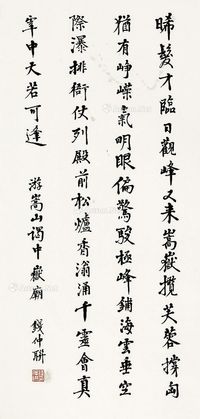 晞髮才臨日觀峰又来嵩嶽攬芙蓉撐匈
猶有崢嶸氣明眼偏驚駿極峰鋪海雲垂空
際瀑排衙仗列殿前松爐香滃涌千靈會真
宰中天若可逢
游嵩山謁中嶽廟
錢仲聯